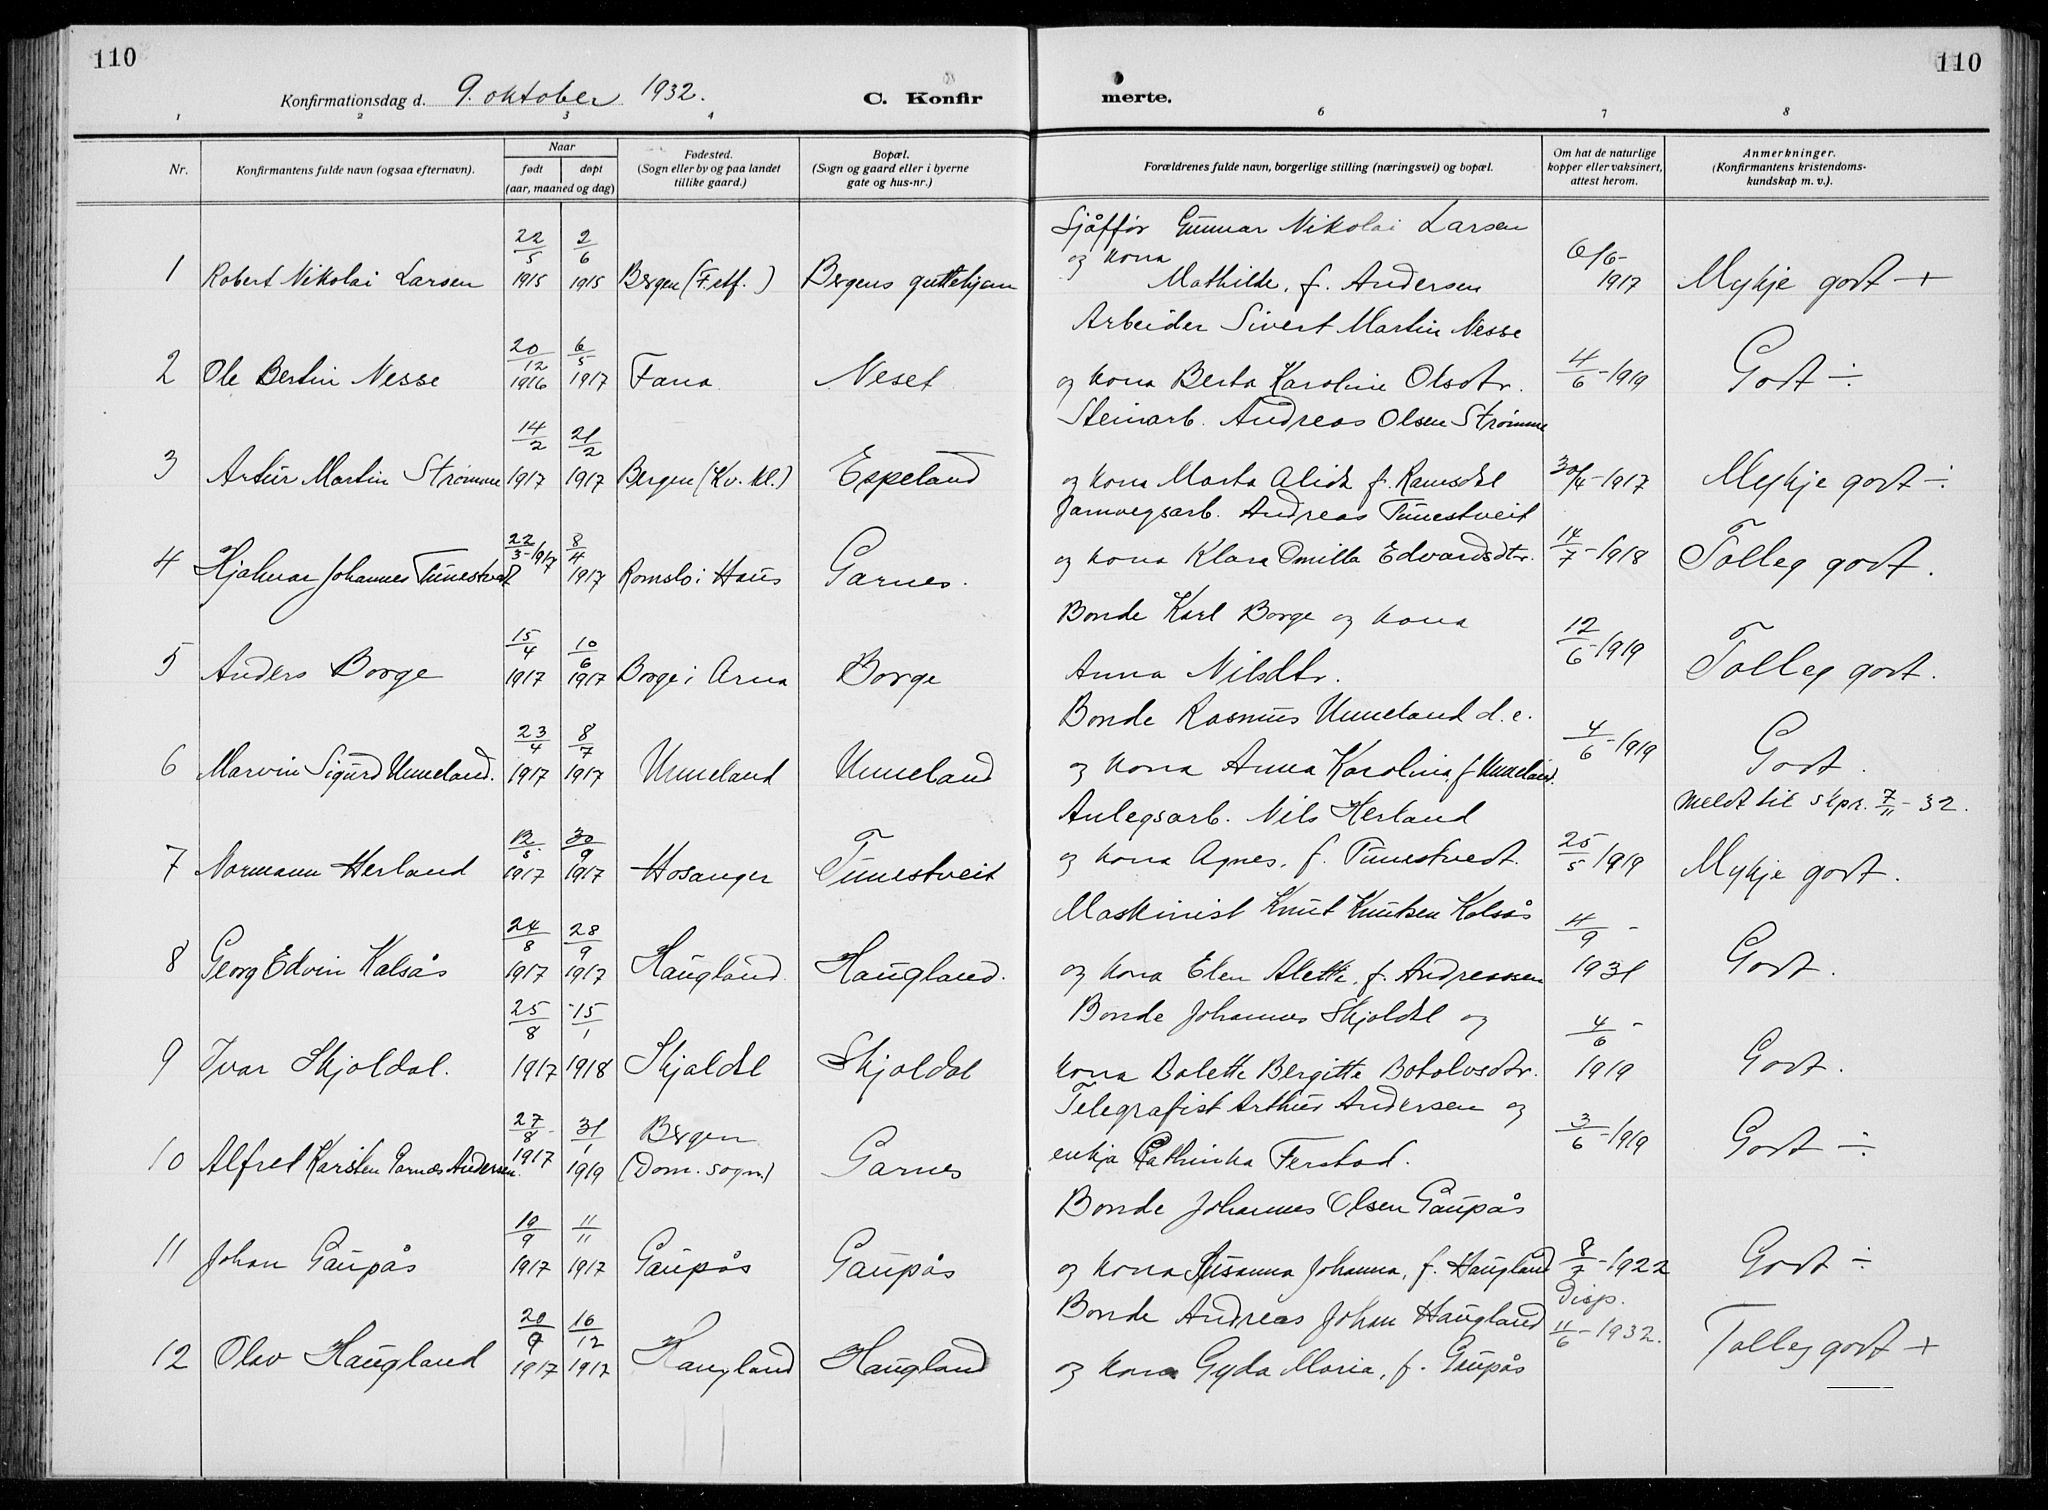 110
110
Konfirmationsdag d. 9. oktober 1932.
C. Konfirmerte.
1 2 3 4 6 7 8
Nr.
Konfirmantens fulde navn (ogsaa efternavn).
Naar
født
døpt
(aar, maaned og dag)
Fødested.
(Sogn eller by og paa landet
tillike gaard.)
Bopæl.
(Sogn og gaard eller i byerne
gate og hus-nr.)
Forældrenes fulde navn, borgerlige stilling (næringsvei) og bopæl.
Om hat de naturlige
kopper eller vaksinert,
attest herom.
Anmerkninger.
(Konfirmantens kristendoms-
kundskap m. v.).
1 Robert Nikolai Larsen 22/5 1915 2/6 1915 Bergen (F.stf.) Bergens guttehjem
Sjåffør Gunnar Nikolai Larsen
og kona
Mathilde, f. Andersen
6/6-1917 Mykje godt +
2 Ole Bertin Nesse 20/12 1916 6/5 1917 Fana Neset
Arbeider Sivert Martin Nesse
og kona Berta Karoline Olsdtr.
4/6-1919 Godt ÷
3 Artur Martin Strømme 14/2 1917 21/2 1917 Bergen (Kv. kl.) Espeland
Steinarb. Andreas Olsen Strømme
og kona Marta Alida f. Ramsdal
30/4-1917 Mykje godt ÷
4 Hjalmar Johannes Tunestveit 22/3-1917 8/4 1917 Romslo i Haus Garnes.
Jarnvegsarb. Andreas Tunestveit
og kona Klara Omilla Edvardsdtr.
14/7-1918 Tolleg godt.
5 Anders Borge 15/4 1917 10/6 1917 Borge i Arna Borge
Bonde Karl Borge og kona
Anna Nilsdtr.
12/6-1919 Tolleg godt.
6 Marvin Sigurd Unneland. 23/4 1917 8/7 1917 Unneland Unneland
Bonde Rasmus Unneland d.e.
og kona Anna Karolina f. Unneland.
4/6-1919 Godt.
meldt til skpr. 7/11-32.
7 Normann Herland 12/5 1917 30/9 1917 Hosanger Tunestveit
Anlegsarb. Nils Herland
og kona Agnes, f. Tunestvedt.
25/5 1919 Mykje godt.
8 Georg Edvin Kalsås 24/8 1917 28/9 1917 Haugland. Haugland.
Maskinist Knut Knutsen Kalsås
og kona Elen Alette, f. Andreassen
4/9-1931 Godt.
9 Ivar Skjoldal. 25/8 1917 15/1 1918 Skjoldal Skjoldal
Bonde Johannes Skjoldal og
kona Bolette Bergitte Botolvsdtr.
4/6-1919 Godt.
10 Alfred Karsten Garnæs Andersen. 27/8-1917 31/1 1919 Bergen (Dom. sogn.) Garnes
Telegrafist Arthur Andersen og
enkja Cathinka Ferstad.
3/6-1919 Godt ÷
11 Johan Gaupås 19/9 1917 11/11 1917 Gaupås Gaupås
Bonde Johannes Olsen Gaupås
og kona Susanna Johanna, f. Haugland
8/7-1922 Godt ÷
12 Olav Haugland 20/9 1917 16/12 1917 Haugland Haugland
Bonde Andreas Johan Haugland
og kona Gyda Maria, f. Gaupås
Disp.
11/6-1932. Tolleg godt +